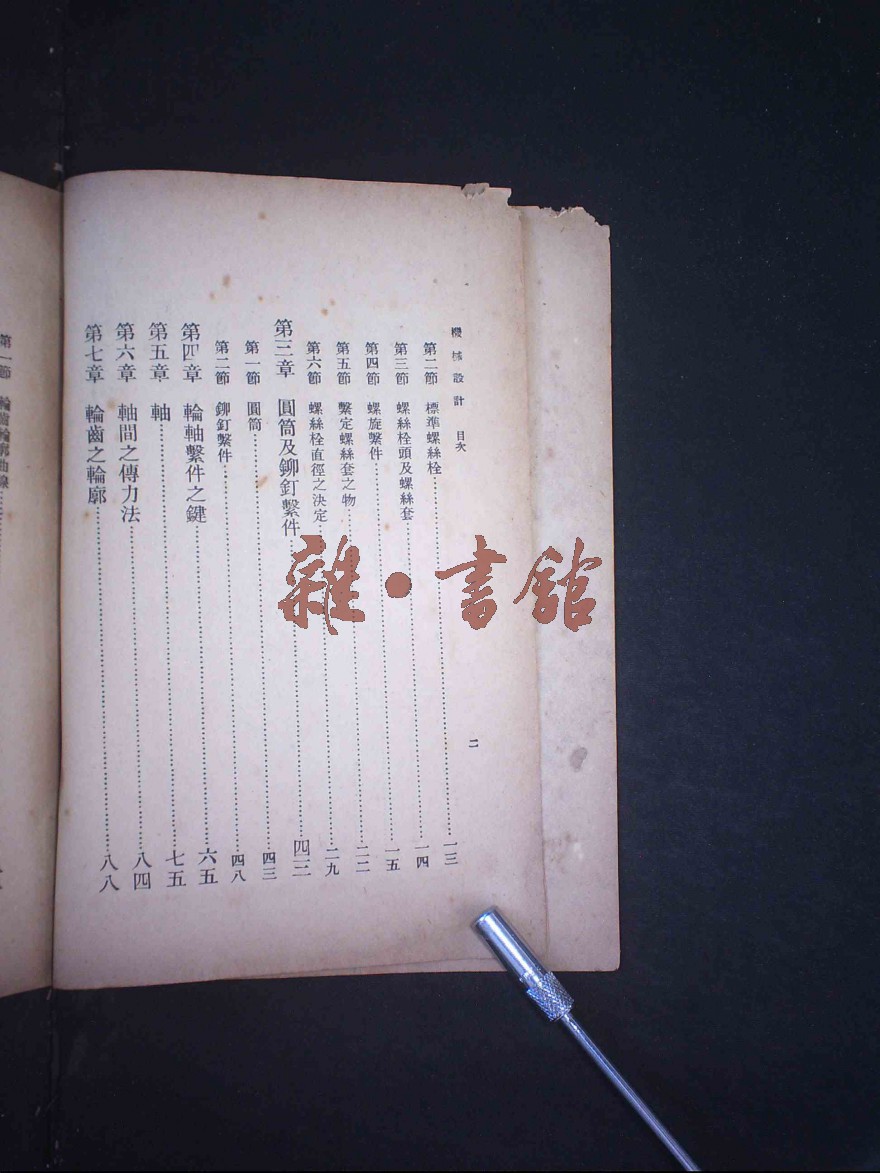 機械設計 目次 二
第二節 標準螺絲栓 一三
第三節 螺絲栓頭及螺絲套 一四
第四節 螺旋繫件 一五
第五節 繫定螺絲套之物 二二
第六節 螺絲栓直徑之決定 二九
第三章 圓筒及鉚釘繫件 四三
第一節 圓筒 四三
第二節 鉚釘繫件 四八
第四章 輪軸繫件之鍵 六五
第五章 軸 七五
第六章 軸間之傳力法 八四
第七章 輪齒之輪廓 八八
第一節 輪齒輪廓曲線
雜·書館